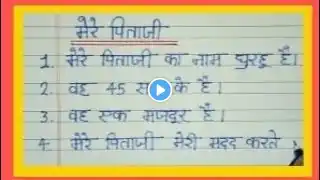 मेरे पिताजी
1. मेरे पिताजी का नाम घुरहु है।
2. वह 45 के है।
3. वह एक मजदूर है।
4. मेरे पिताजी मेरी मदद करते